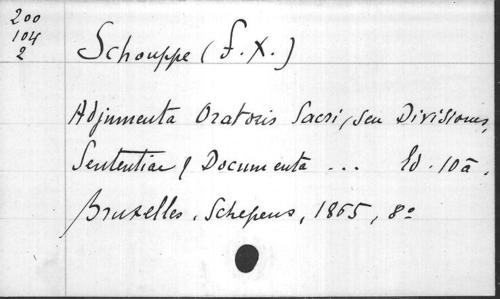 200
104
2
Schouppe (F. X.)
Adjumenta Oratoris Sacri, seu Divisiones,
Sententiae & Documenta ... Ed. 10a.
Bruxelles, Schepens, 1865, 8º